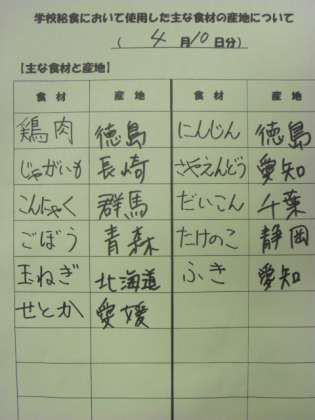 学校給食において使用した主な食材の産地について
( 4月10日分)
【主な食材と産地】
食材 産地 食材 産地
鶏肉 徳島 にんじん 徳島
じゃがいも 長崎 さやえんどう 愛知
こんにゃく 群馬 だいこん 千葉
ごぼう 青森 たけのこ 静岡
玉ねぎ 北海道 ふき 愛知
せとか 愛媛